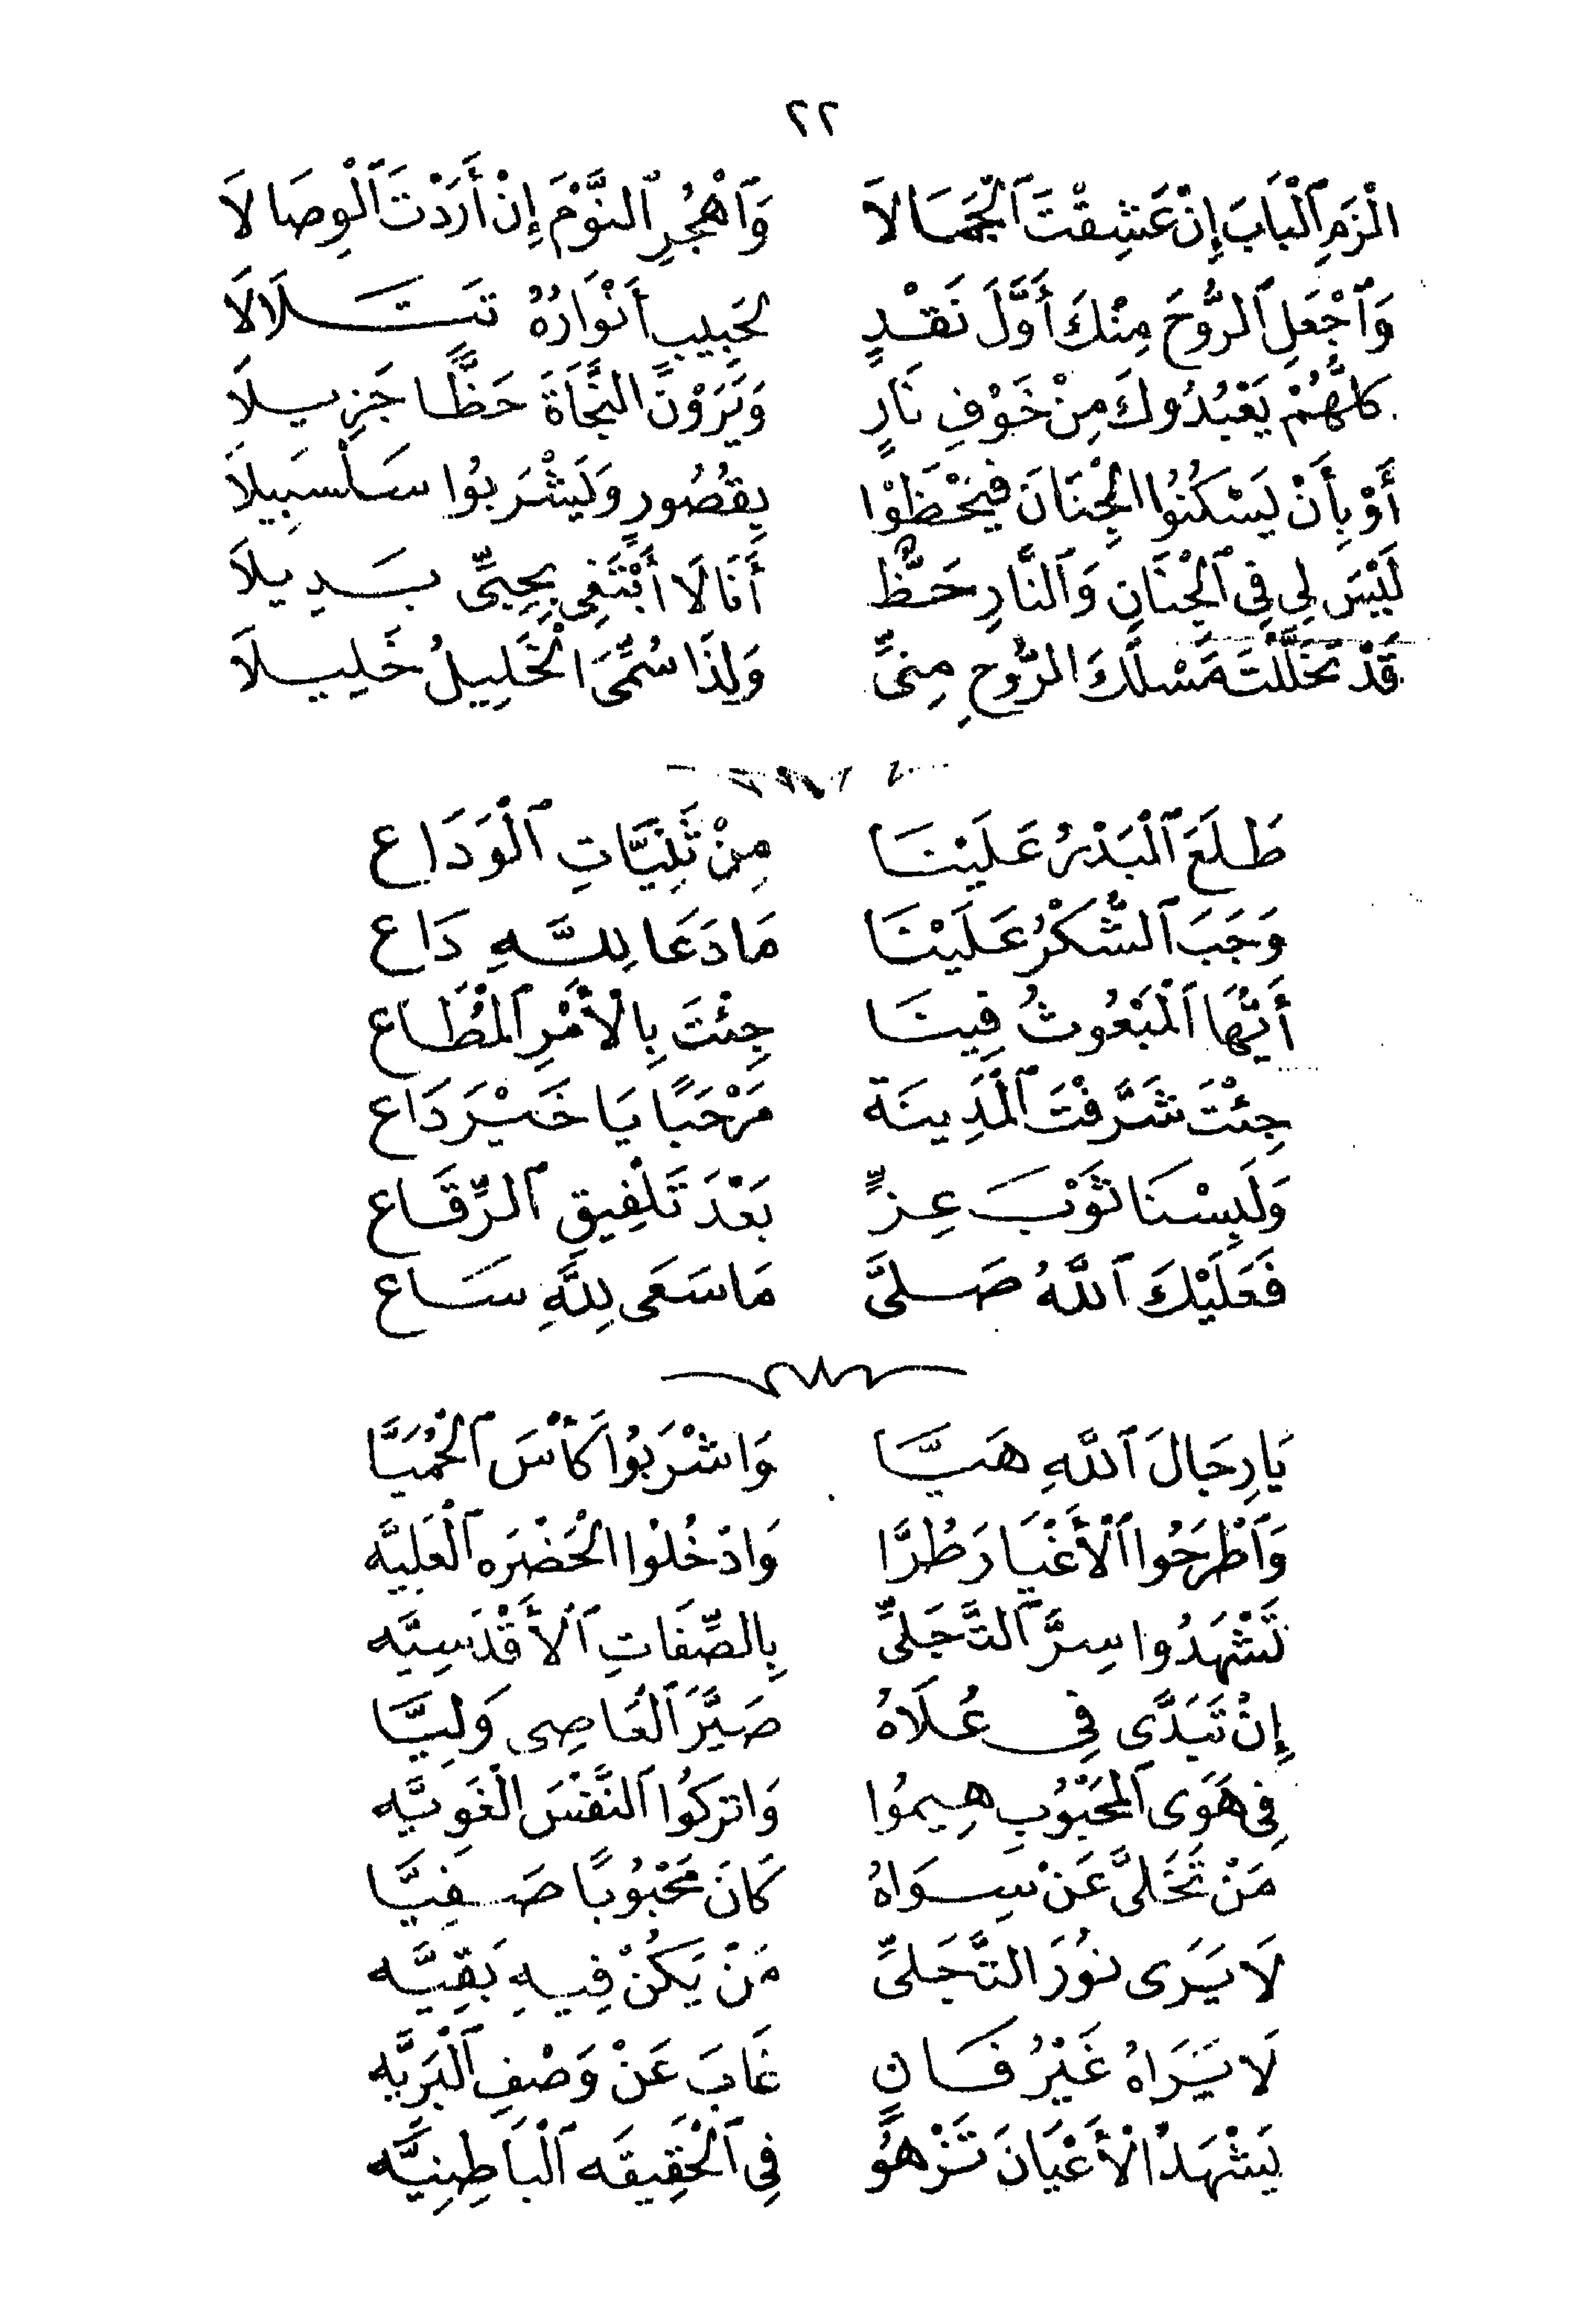 ٢٢
الْزَمِ ٱلْبَابَ إِنْ عَشِقْتَ ٱلْجَمَالَا وَٱهْجُرِ ٱلنَّوْمَ إِنْ أَرَدْتَ ٱلْوِصَالَا
وَٱجْعَلِ ٱلرُّوحَ مِنْكَ أَوَّلَ نَقْدٍ لِحَبِيبٍ أَنْوَارُهُ تَتَلَالَا
كُلُّهُمْ يَعْبُدُوكَ مِنْ خَوْفِ نَارٍ وَيَرَوْنَ النَّجَاةَ حَظًّا جَزِيلَا
أَوْ بِأَنْ يَسْكُنُوا الْجِنَانَ فَيَحْظَوْا بِقُصُورٍ وَيَشْرَبُوا سَلْسَبِيلَا
لَيْسَ لِي فِي ٱلْجَنَانِ وَٱلنَّارِ حَظٌّ أَنَا لَا أَبْتَغِي بِحِبِّي بَدِيلَا
قَدْ تَخَلَّلْتَ مَسْلَكَ الرُّوحِ مِنِّي وَلِذَا سُمِّيَ الْخَلِيلُ خَلِيلَا
طَلَعَ ٱلْبَدْرُ عَلَيْنَا مِنْ ثَنِيَّاتِ ٱلْوَدَاع
وَجَبَ ٱلشُّكْرُ عَلَيْنَا مَا دَعَا لِلَّهِ دَاع
أَيُّهَا ٱلْمَبْعُوثُ فِينَا جِئْتَ بِالْأَمْرِ ٱلْمُطَاع
جِئْتَ شَرَّفْتَ ٱلْمَدِينَة مَرْحَبًا يَا خَيْرَ دَاع
وَلَبِسْنَا ثَوْبَ عِزٍّ بَعْدَ تَلْفِيقِ ٱلرِّقَاع
فَعَلَيْكَ ٱللَّهُ صَلَّى مَا سَعَى لِلَّهِ سَاع
يَا رِجَالَ ٱللَّهِ هَيَّا وَاشْرَبُوا كَأْسَ ٱلْحُمَيَّا
وَٱطْرَحُوا ٱلْأَغْيَارَ طُرًّا وَادْخُلُوا الْحَضْرَه ٱلْعَلِيَّه
تَشْهَدُوا سِرَّ ٱلتَّجَلِّي بِالصِّفَاتِ ٱلْأَقْدَسِيَّه
إِنْ تَبَدَّى فِي عُلَاهُ صَيَّرَ ٱلْعَاصِي وَلِيَّا
فِي هَوَى ٱلْمَحْبُوبِ هِيمُوا وَاتْرُكُوا ٱلنَّفْسَ الْغَوِيَّه
مَنْ تَخَلَّى عَنْ سِوَاهُ كَانَ مَحْبُوبًا صَفِيَّا
لَا يَرَى نُورَ التَّجَلِّي مَنْ يَكُنْ فِيهِ بَقِيَّه
لَا يَرَاهُ غَيْرُ فَانٍ غَابَ عَنْ وَصْفِ ٱلْبَرِيَّه
يَشْهَدُ الْأَعْيَانَ تَزْهُو فِي ٱلْحَقِيقَه ٱلْبَاطِنِيَّه